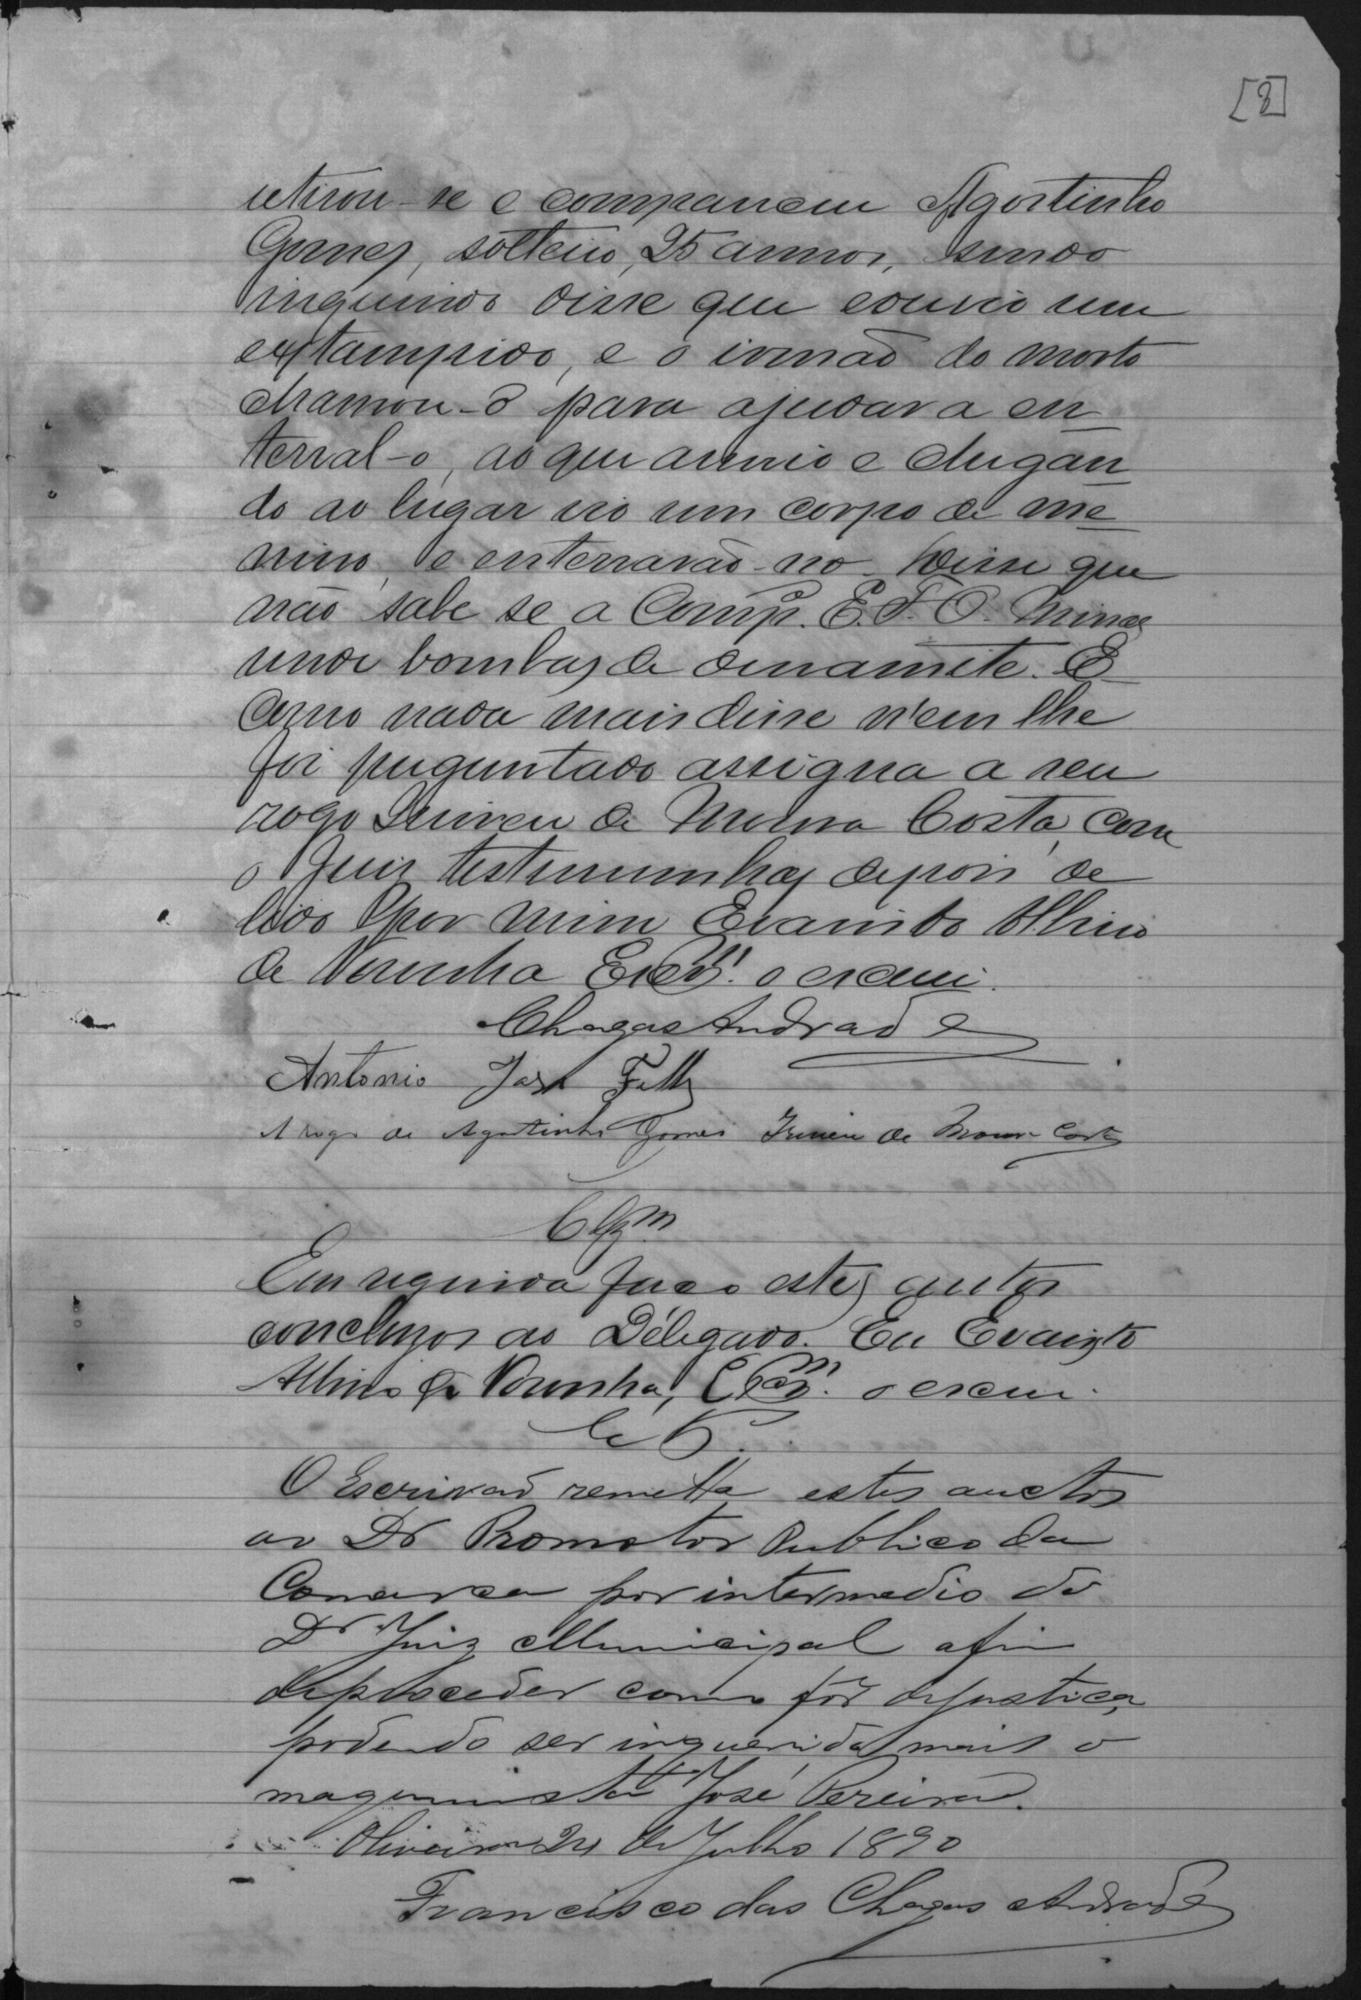 [8]
retirou-se e compareceu Agostinho
Gomes, solteiro, 25 annos, sendo
inquirido disse que ouvio um
extampido, e o irmão do morto
chamou-o para ajudar a en
terral-o, ao que annuio e chegan
do ao lugar vio um corpo de me
nino, e enterrarão-no. Disse que
não sabe se a Comp.ª E. F. O. Minas
vende bombas de dinamite. E
como nada mais disse nem lhe
foi preguntado assigna a seu
rogo Irineu de Moura Costa, com
o Juiz testemunhas depois de
lido por mim Evaristo Albino
de Noronha Escr.m o escrevi.
Chagas Andrade
Antonio José
A rogo de Agostinho Gomes Irineu de Moura Costa
Clz.m
Em seguida faço estes autos
concluzos ao Délegado. Eu Evaristo
Albino de Noronha, Escr.m o escrevi.
O Escrivaõ remetta estes auctos
ao Dr Promotor Publico da
Comarca por intermedio do
Dr Juiz Municipal afim
deproceder como fôr dejustiça,
podendo ser inquerido mais o
maquinista José Pereira.
Oliveira 24 de Julho 1890
Francisco das Chagas Andrade